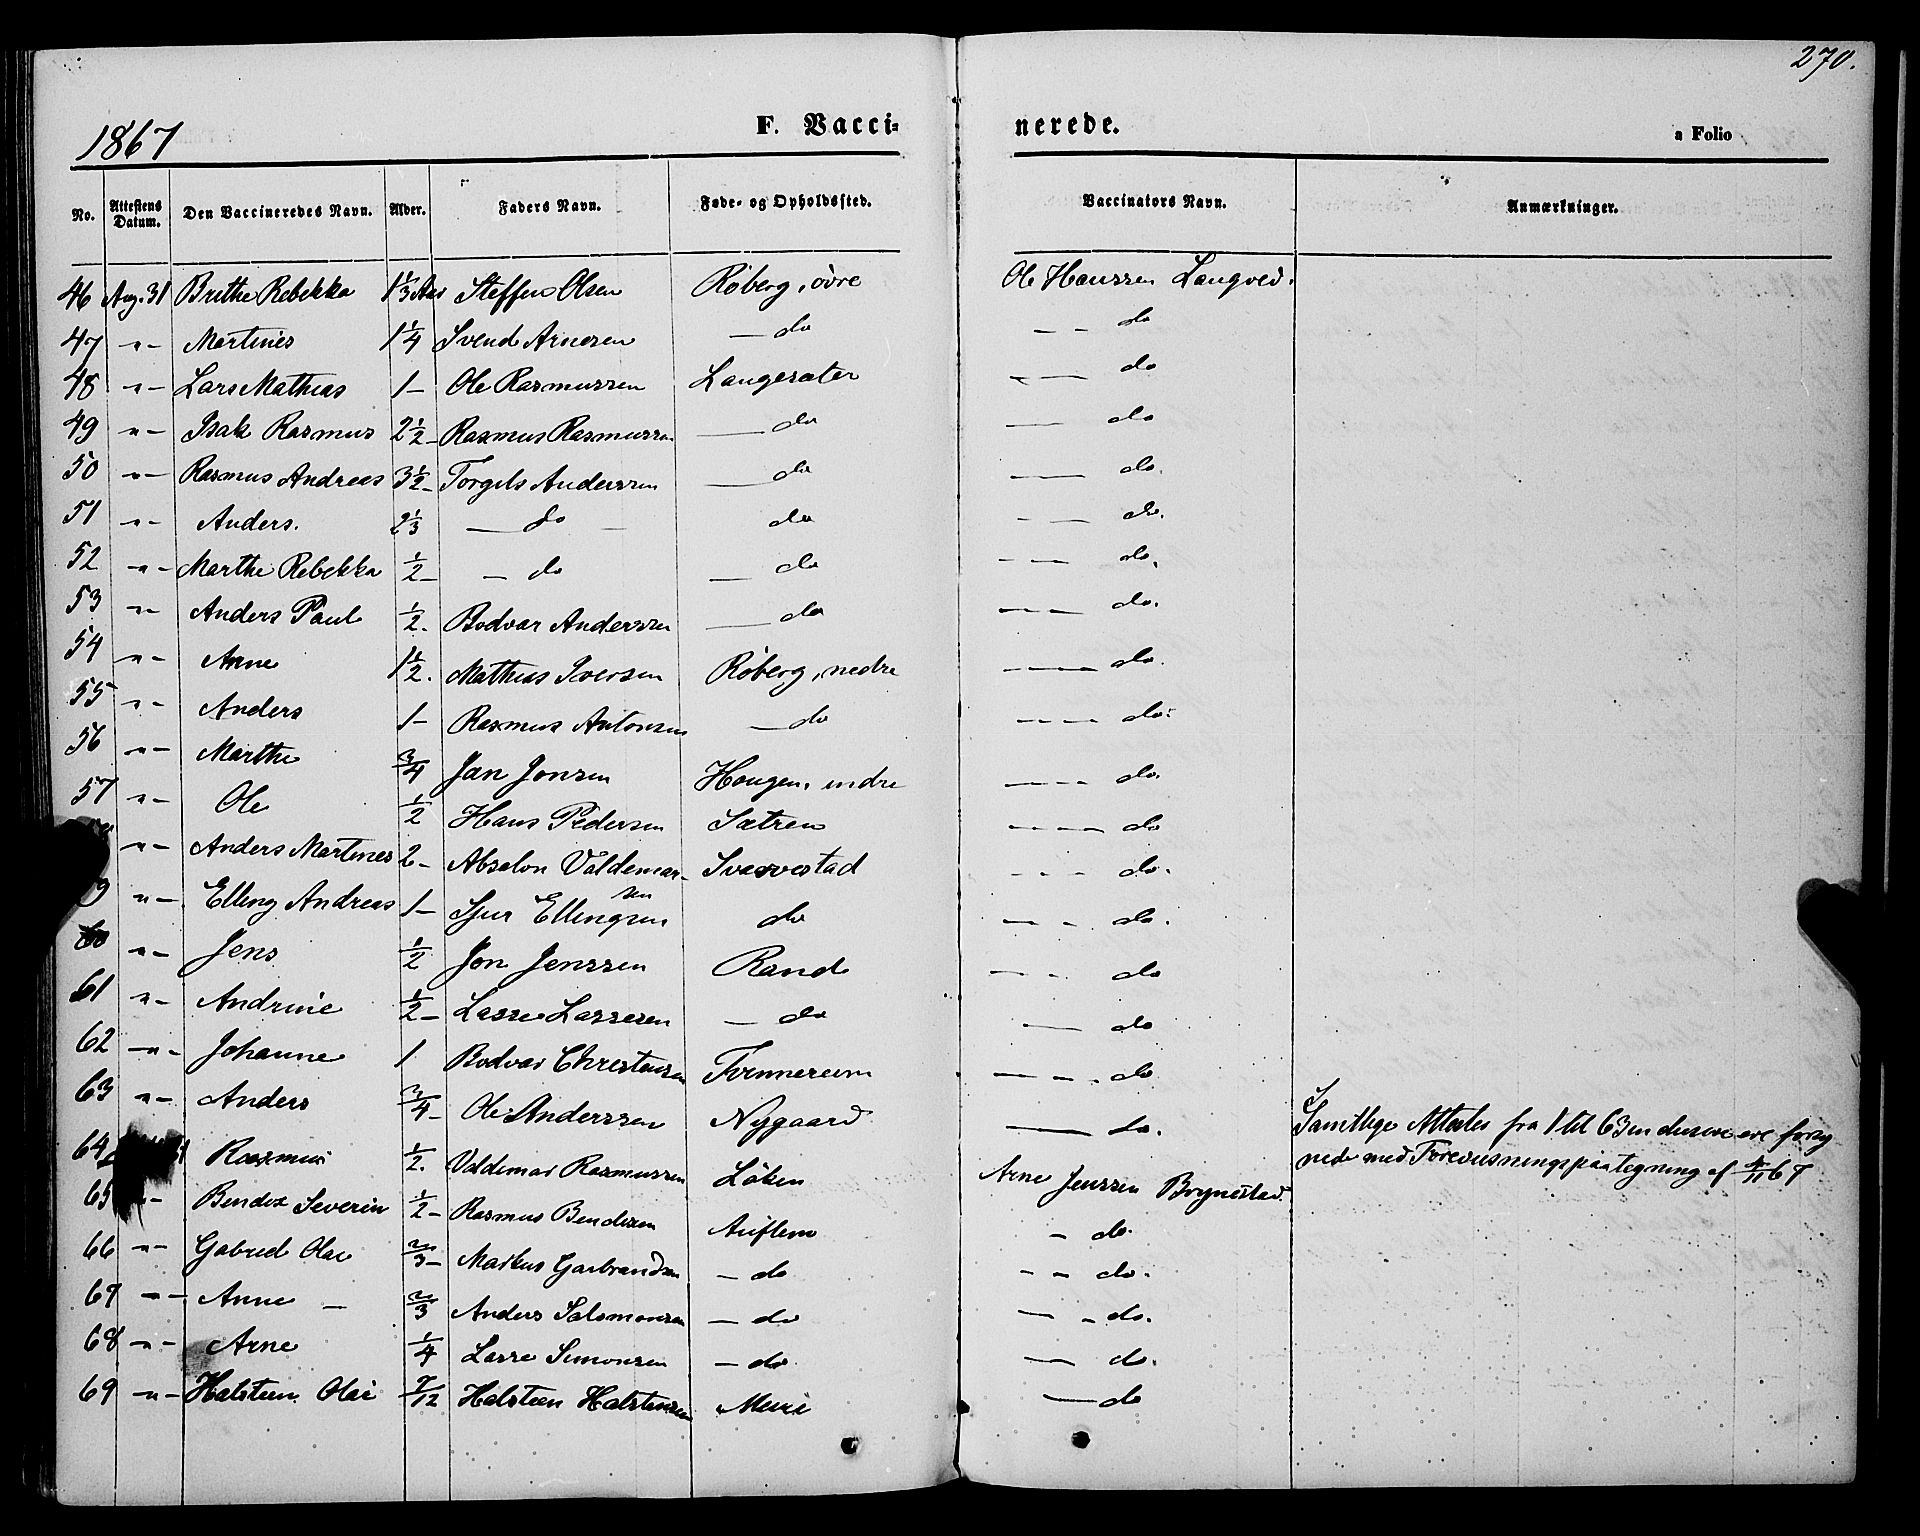 270.
1867 F. Vacci= nerede. a Folio
No. Attestens Datum. Den Vaccineredes Navn. Alder. Faders Navn. Føde- og Opholdssted. Vaccinators Navn. Anmærkninger.
46 Aug. 31 Brithe Rebekka 1 1/3 Aar Steffen Olsen Røberg, øvre Ole Hanssen Langved.
47 " - Martines 1 1/4 Svend Arnesen — do - - do
48 " - Lars Mathias 1 - Ole Rasmussen Langesæter - — do
49 " - Isak Rasmus 2 1/2 - Rasmus Rasmussen — do — do
50 " - Rasmus Andreas 3 1/2 - Torgils Anderssen — do — do.
51 " - Anders. 2 1/3 — do — do - — do.
52 " - Marthe Rebekka 1/2 - - do — do - - — do.
53 " - Anders Paul 1/2. Bodvar Anderssen — do — - — do.
54 " - Anne 1 1/2. Mathias Iversen Røberg, nedre - - — do.
55 " - Anders 1 - Rasmus Antonsen — do - - - - do.
56 " - Marthe 3/4 Jan Jonsen Hougen, indre - - - - do.
57 " - Ole 1/2 Hans Pedersen Sætren - - - - do
" - Anders Martines 2 - Absalon Valdemarsen Svarvestad - - - do.
9 " - Elling Andreas 1 - Sjur Ellingsen do — - - do.
60 " - Jens 1/2 Jon Jenssen Rand — - - do
61 " - Andrine 1/2 - Lasse Lassesen — do — do
62 " - Johanne 1 Bodvar Christensen Tvinnereim — - - do
63 " - Anders 3/4 - Ole Anderssen Nygaard — do. Samtlige Attester fra 1 til 63 ere forsy
64 Rasmus 1/2. Valdemar Rasmussen Løken Arne Jenssen Brynestad. nede med Forevisningspaategning af 67
65 - Bendix Severin 1/2 - Rasmus Bendixen Auflem - do.
66 " - Gabriel Olai 2/3 - Markus Garbrandsen — do - - do.
67 - - Anne — 2/3 Anders Salomonsen — do — - do.
68 " - Arne 1/4 Lasse Simonsen — do — do.
69 " - Halsteen Olai 7/12 Halsteen Halstensen Muri — do